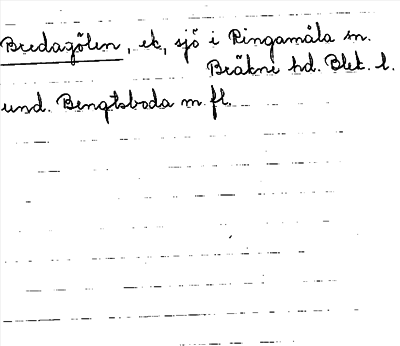 Bredagölen, ek, sjö i Ringamåla sn.
Bräkne hd. Blek. l.
und. Bengtsboda m fl.